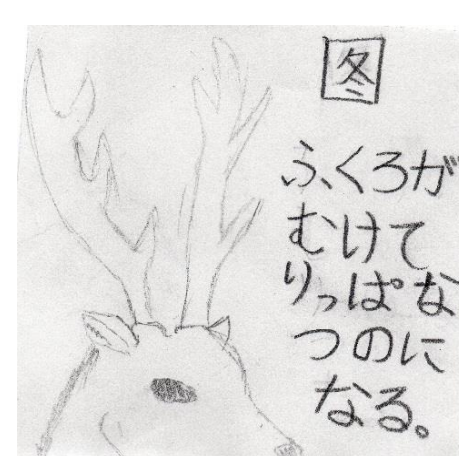 冬
ふくろが
むけて
りっぱな
つのに
なる。